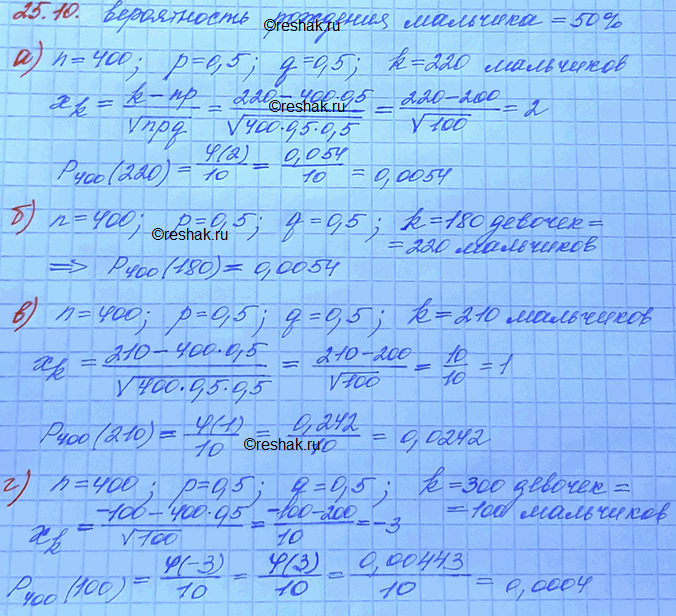 25.10. вероятность рождения мальчика = 50%
а) n=400; p=0,5; q=0,5; k=220 мальчиков
x_k = (k-np)/√npq = (220-400·0,5)/√400·0,5·0,5 = (220-200)/√100 = 2
©reshak.ru
P_400(220) = φ(2)/10 = 0,054/10 = 0,0054
б) n=400; p=0,5; q=0,5; k=180 девочек =
©reshak.ru
= 220 мальчиков
⟹ P_400(180) = 0,0054
в) n=400; p=0,5; q=0,5; k=210 мальчиков
x_k = (210-400·0,5)/√400·0,5·0,5 = (210-200)/√100 = 10/10 = 1
P_400(210) = φ(1)/10 = 0,242/10 = 0,0242
©reshak.ru
г) n=400; p=0,5; q=0,5; k=300 девочек =
= 100 мальчиков
x_k = (-100-400·0,5)/√100 = (-100-200)/10 = -3
P_400(100) = φ(-3)/10 = φ(3)/10 = 0,00443/10 = 0,0004